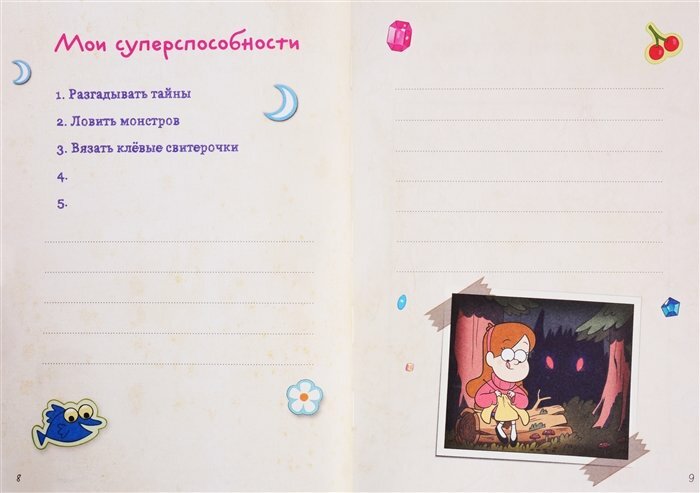 Мои суперспособности
1. Разгадывать тайны
2. Ловить монстров
3. Вязать клёвые свитерочки
4.
5.
8
9